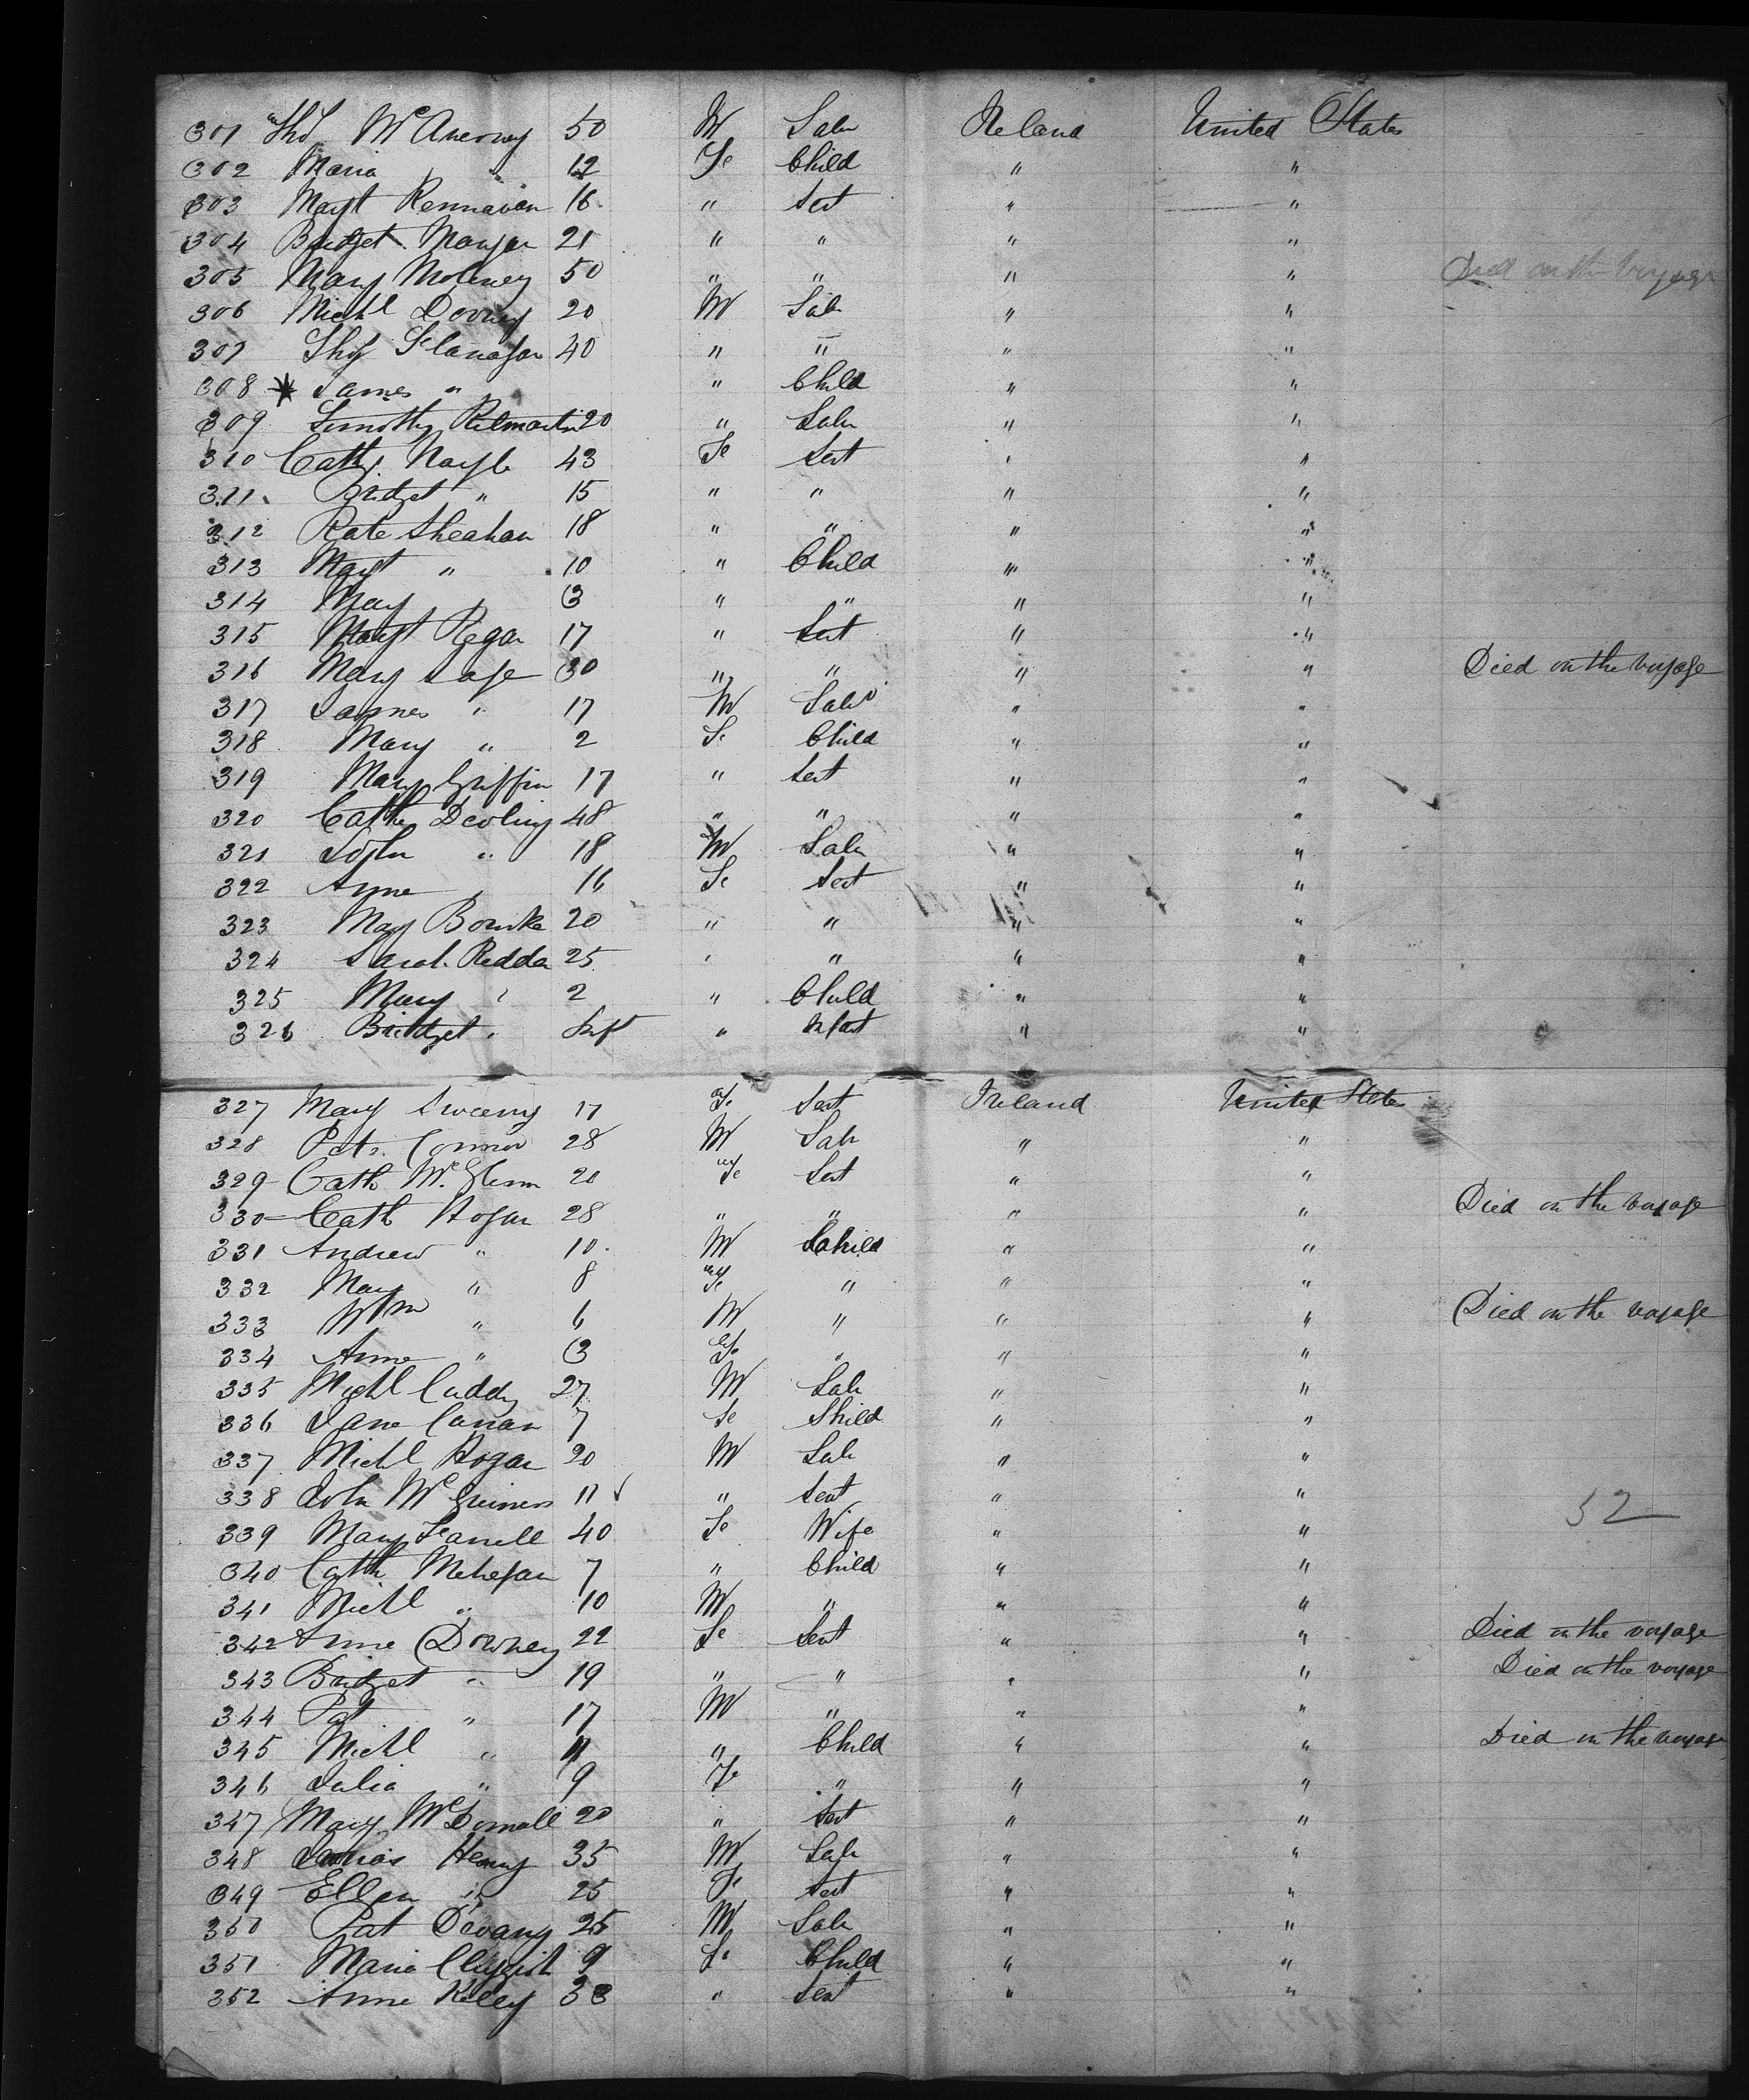 301 Thos McAnerney 50 M Labr Ireland United States
302 Maria " 12 Fe Child " "
303 Margt Kennavan 16 " Sert " "
304 Bridget Mangan 21 " " " "
305 Mary Moloney 50 " " " " Died on the voyage
306 Michl Downey 20 M Labr " "
307 Thos Flanagan 40 " " " "
308 * James " " Child " "
309 Timothy Kilmartin 20 " Labr " "
310 Cath Nagle 43 Fe Sert " "
311 Bridget " 15 " " " "
312 Kate Sheahan 18 " " " "
313 Margt " 10 " Child " "
314 Mary " 3 " " " "
315 Margt Regan 17 " Sert " "
316 Mary Lafe 30 " " " " Died on the voyage
317 James " 17 M Labr " "
318 Mary " 2 Fe Child " "
319 Mary Griffin 17 " Sert " "
320 Cathe Devling 48 " " " "
321 John " 18 M Labr " "
322 Anne " 16 Fe Sert " "
323 Mary Bourke 20 " " " "
324 Sarah Reddan 25 " " " "
325 Mary " 2 " Child " "
326 Bridget " Inft " Infant " "
327 Mary Sweeny 17 Fe Sert Ireland United States
328 Patr. Connor 28 M Labr " "
329 Cath McGlenn 20 Fe Sert " "
330 Cath Hogan 28 " " " " Died on the voyage
331 Andrew " 10 M Child " "
332 Mary " 8 Fe " " "
333 Wm " 6 M " " " Died on the voyage
334 Anne " 3 Fe " " "
335 Michl Cuddy 27 M Labr " "
336 Jane Canan 7 Fe Child " "
337 Michl Hogan 20 M Labr " "
338 John McGuinness 11 " Sert " " 52
339 Mary Farrell 40 Fe Wife " "
340 Cath Mehegan 7 " Child " "
341 Michl " 10 M " " "
342 Anne Downey 22 Fe Sert " " Died on the voyage
343 Bridget " 19 " " " " Died on the voyage
344 Pat " 17 M " " "
345 Michl " 11 " Child " " Died on the voyage
346 Julia " 9 Fe " " "
347 Mary McDonnall 20 " Sert " "
348 Henry 35 M Labr " "
349 Ellen " 25 Fe Sert " "
350 Pat Devany 25 M Labr " "
351 Maria 9 Fe Child " "
352 Anne Kelley 38 " Sert " "